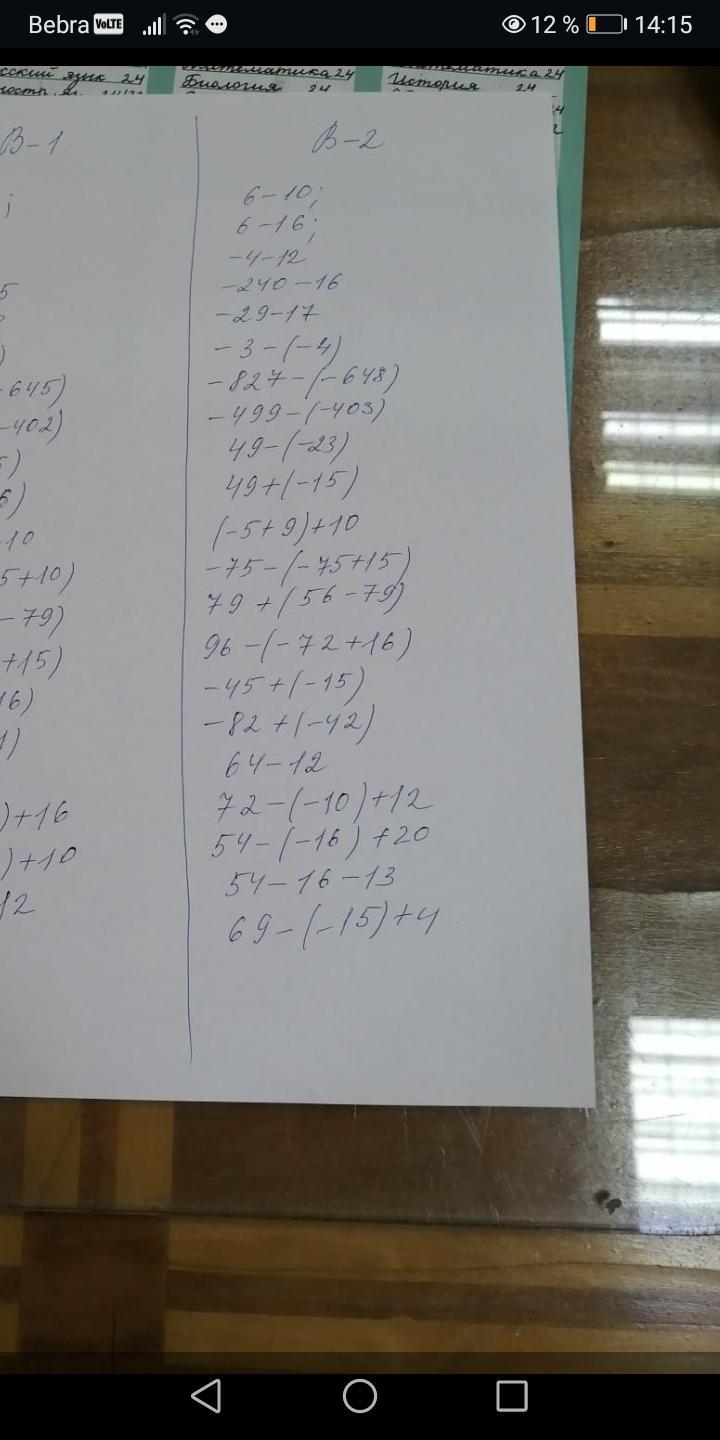 Bebra VoLTE 12 % 14:15
Математика 24 Математика 24
сский язык 24 Биология 24 История 24
В-1
;
5
)
-645)
-402)
5)
6)
10
5+10)
-79)
+15)
16)
1)
)+16
)+10
12
В-2
6-10;
6-16;
-4-12
-240-16
-29-17
-3-(-4)
-827-(-648)
-499-(-403)
49-(-23)
49+(-15)
(-5+9)+10
-75-(-75+15)
79+(56-79)
96-(-72+16)
-45+(-15)
-82+(-42)
64-12
72-(-10)+12
54-(-16)+20
54-16-13
69-(-15)+4